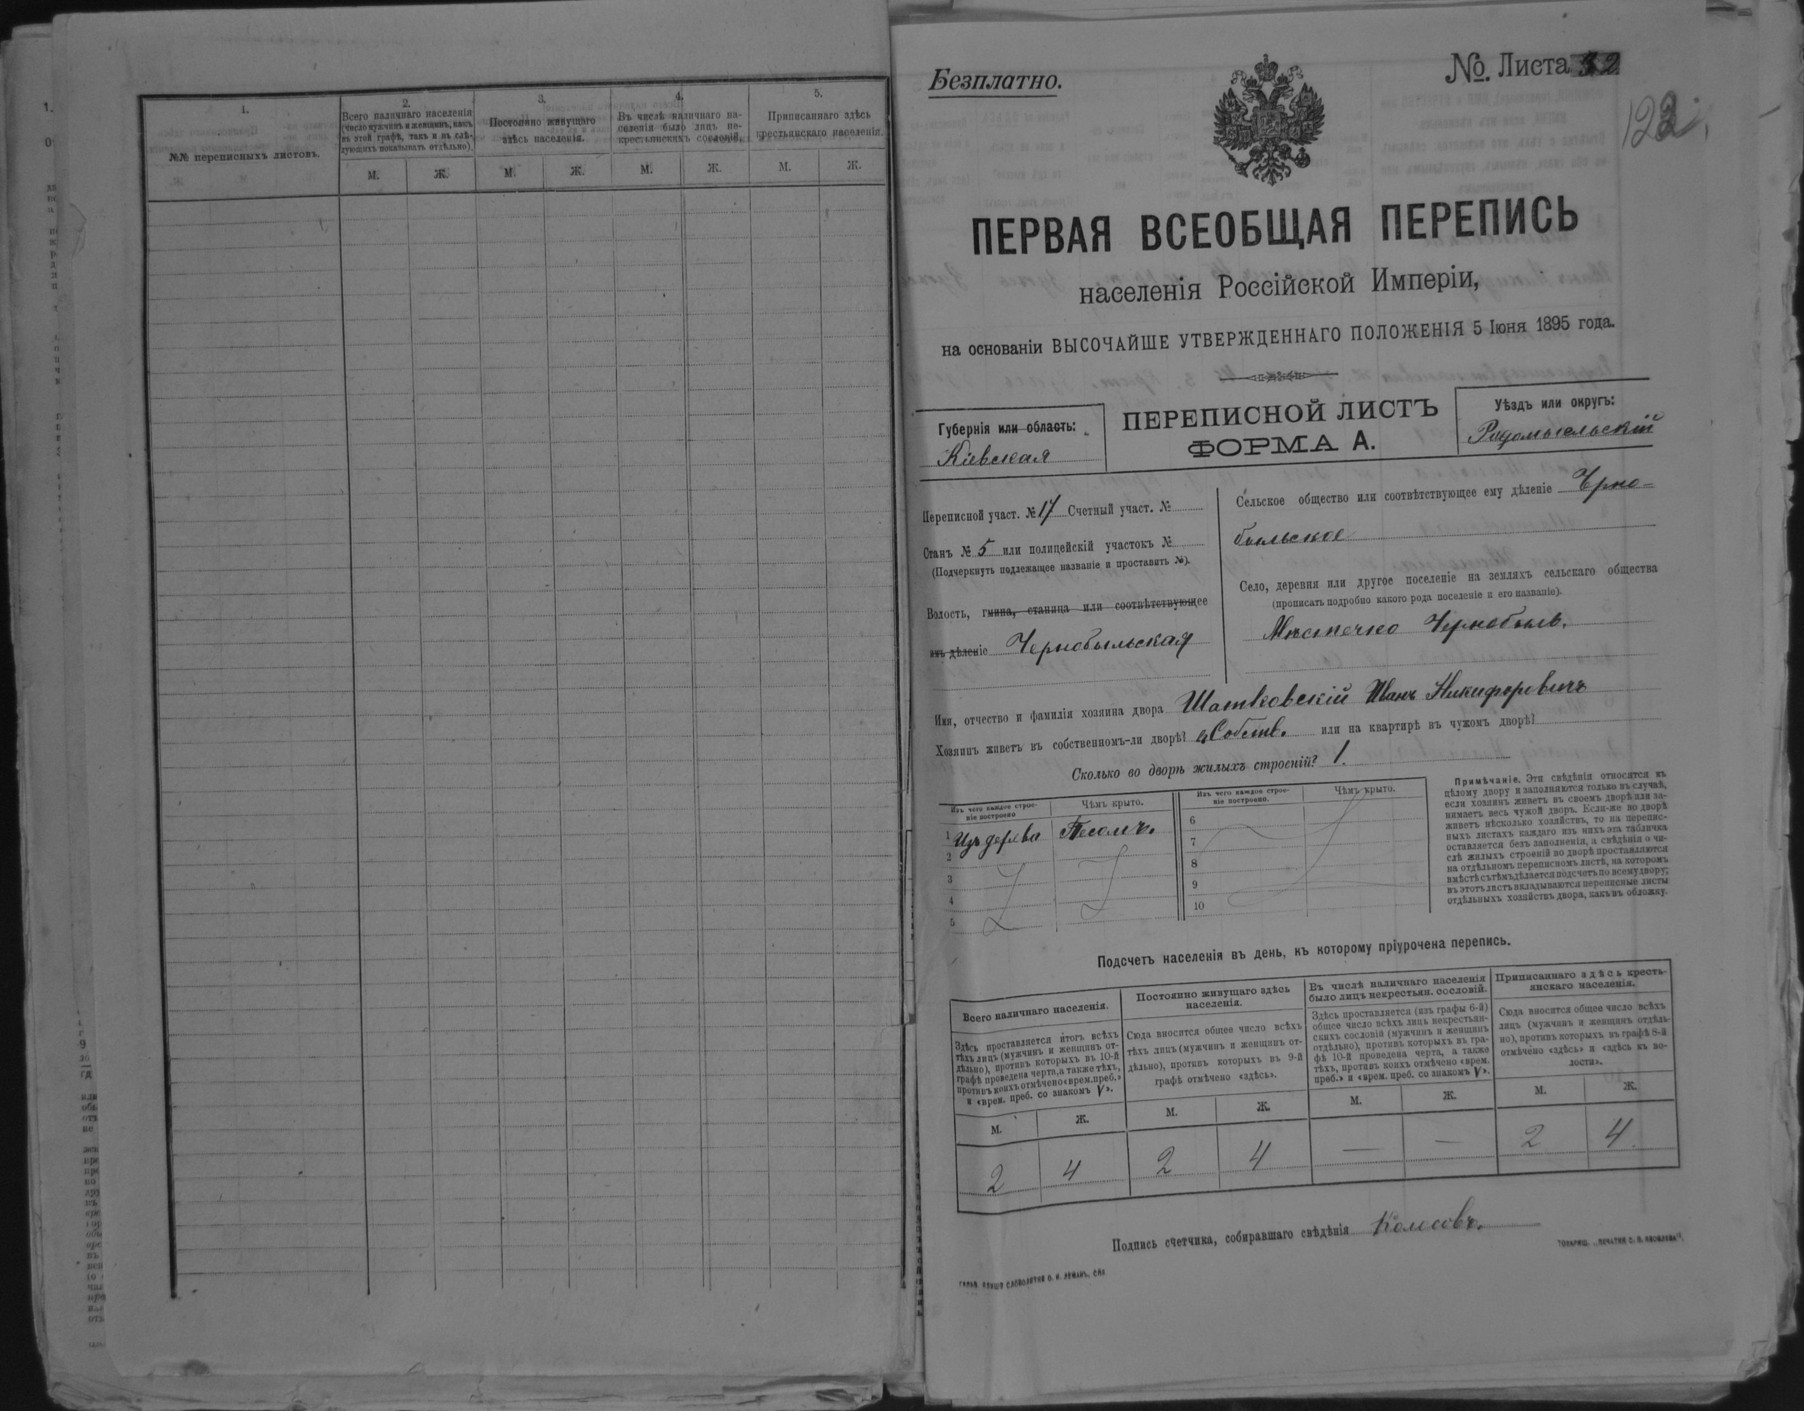 1.
№№ переписныхъ листовъ.
2.
Всего наличнаго населенія
(число мужчинъ и женщинъ, какъ
въ этой графѣ, такъ и въ слѣ-
дующихъ показывать отдѣльно).
3.
Постоянно живущаго
здѣсь населенія.
4.
Въ числѣ наличнаго на-
селенія было лицъ не-
крестьянскихъ сословій.
5.
Приписаннаго здѣсь
крестьянскаго населенія.
М. Ж. М. Ж. М. Ж. М. Ж.
Безплатно.
№. Листа 32
122
ПЕРВАЯ ВСЕОБЩАЯ ПЕРЕПИСЬ
населенія Россійской Имперіи,
на основаніи ВЫСОЧАЙШЕ УТВЕРЖДЕННАГО ПОЛОЖЕНІЯ 5 Іюня 1895 года.
Губернія или область:
Кіевская
ПЕРЕПИСНОЙ ЛИСТЪ
ФОРМА А.
Уѣздъ или округъ:
Радомысльскій
Переписной участ. № 17 Счетный участ. №
Станъ № 5 или полицейскій участокъ №
(Подчеркнуть подлежащее названіе и проставить №).
Волость, гмина, станица или соотвѣтствующее
имъ дѣленіе Чернобыльская
Сельское общество или соотвѣтствующее ему дѣленіе Черно-
быльское
Село, деревня или другое поселеніе на земляхъ сельскаго общества
(прописать подробно какого рода поселеніе и его названіе).
Мѣстечко Чернобыль.
Имя, отчество и фамилія хозяина двора Шатковскій Иванъ Никифоровичъ
Хозяинъ живетъ въ собственномъ-ли дворѣ? Собств. или на квартирѣ въ чужомъ дворѣ?
Сколько во дворѣ жилыхъ строеній? 1.
Изъ чего каждое строе-
ніе построено
Чѣмъ крыто.
Изъ чего каждое строе-
ніе построено.
Чѣмъ крыто.
1 Изъ дерева Тесомъ.
2
3
4
5
6
7
8
9
10
Примѣчаніе. Эти свѣдѣнія относятся къ
цѣлому двору и заполняются только въ случаѣ,
если хозяинъ живетъ въ своемъ дворѣ или за-
нимаетъ весь чужой дворъ. Если-же во дворѣ
живетъ нѣсколько хозяйствъ, то на перепис-
ныхъ листахъ каждаго изъ нихъ эта табличка
оставляется безъ заполненія, а свѣдѣнія о чи-
слѣ жилыхъ строеній во дворѣ проставляются
на отдѣльномъ переписномъ листѣ, на которомъ
вмѣстѣ съ тѣмъ дѣлается подсчетъ по всему двору;
въ этотъ листъ вкладываются переписные листы
отдѣльныхъ хозяйствъ двора, какъ въ обложку.
Подсчетъ населенія въ день, къ которому пріурочена перепись.
Всего наличнаго населенія.
Здѣсь проставляется итогъ всѣхъ
тѣхъ лицъ (мужчинъ и женщинъ от-
дѣльно), противъ которыхъ въ 10-й
графѣ проведена черта, а также тѣхъ,
противъ коихъ отмѣчено «врем. преб.»
и «врем. преб. со знакомъ V».
Постоянно живущаго здѣсь
населенія.
Сюда вносится общее число всѣхъ
тѣхъ лицъ (мужчинъ и женщинъ от-
дѣльно), противъ которыхъ въ 9-й
графѣ отмѣчено «здѣсь».
Въ числѣ наличнаго населенія
было лицъ некрестьян. сословій.
Здѣсь проставляется (изъ графы 6-й)
общее число всѣхъ лицъ некрестьян-
скихъ сословій (мужчинъ и женщинъ
отдѣльно), противъ которыхъ въ гра-
фѣ 10-й проведена черта, а также
тѣхъ, противъ коихъ отмѣчено «врем.
преб.» и «врем. преб. со знакомъ V».
Приписаннаго здѣсь кресть-
янскаго населенія.
Сюда вносится общее число всѣхъ
лицъ (мужчинъ и женщинъ отдѣль-
но), противъ которыхъ въ графѣ 8-й
отмѣчено «здѣсь» и «здѣсь въ во-
лости».
М. Ж. М. Ж. М. Ж. М. Ж.
2 4 2 4 — — 2 4
Подпись счетчика, собиравшаго свѣдѣнія Колесовъ.